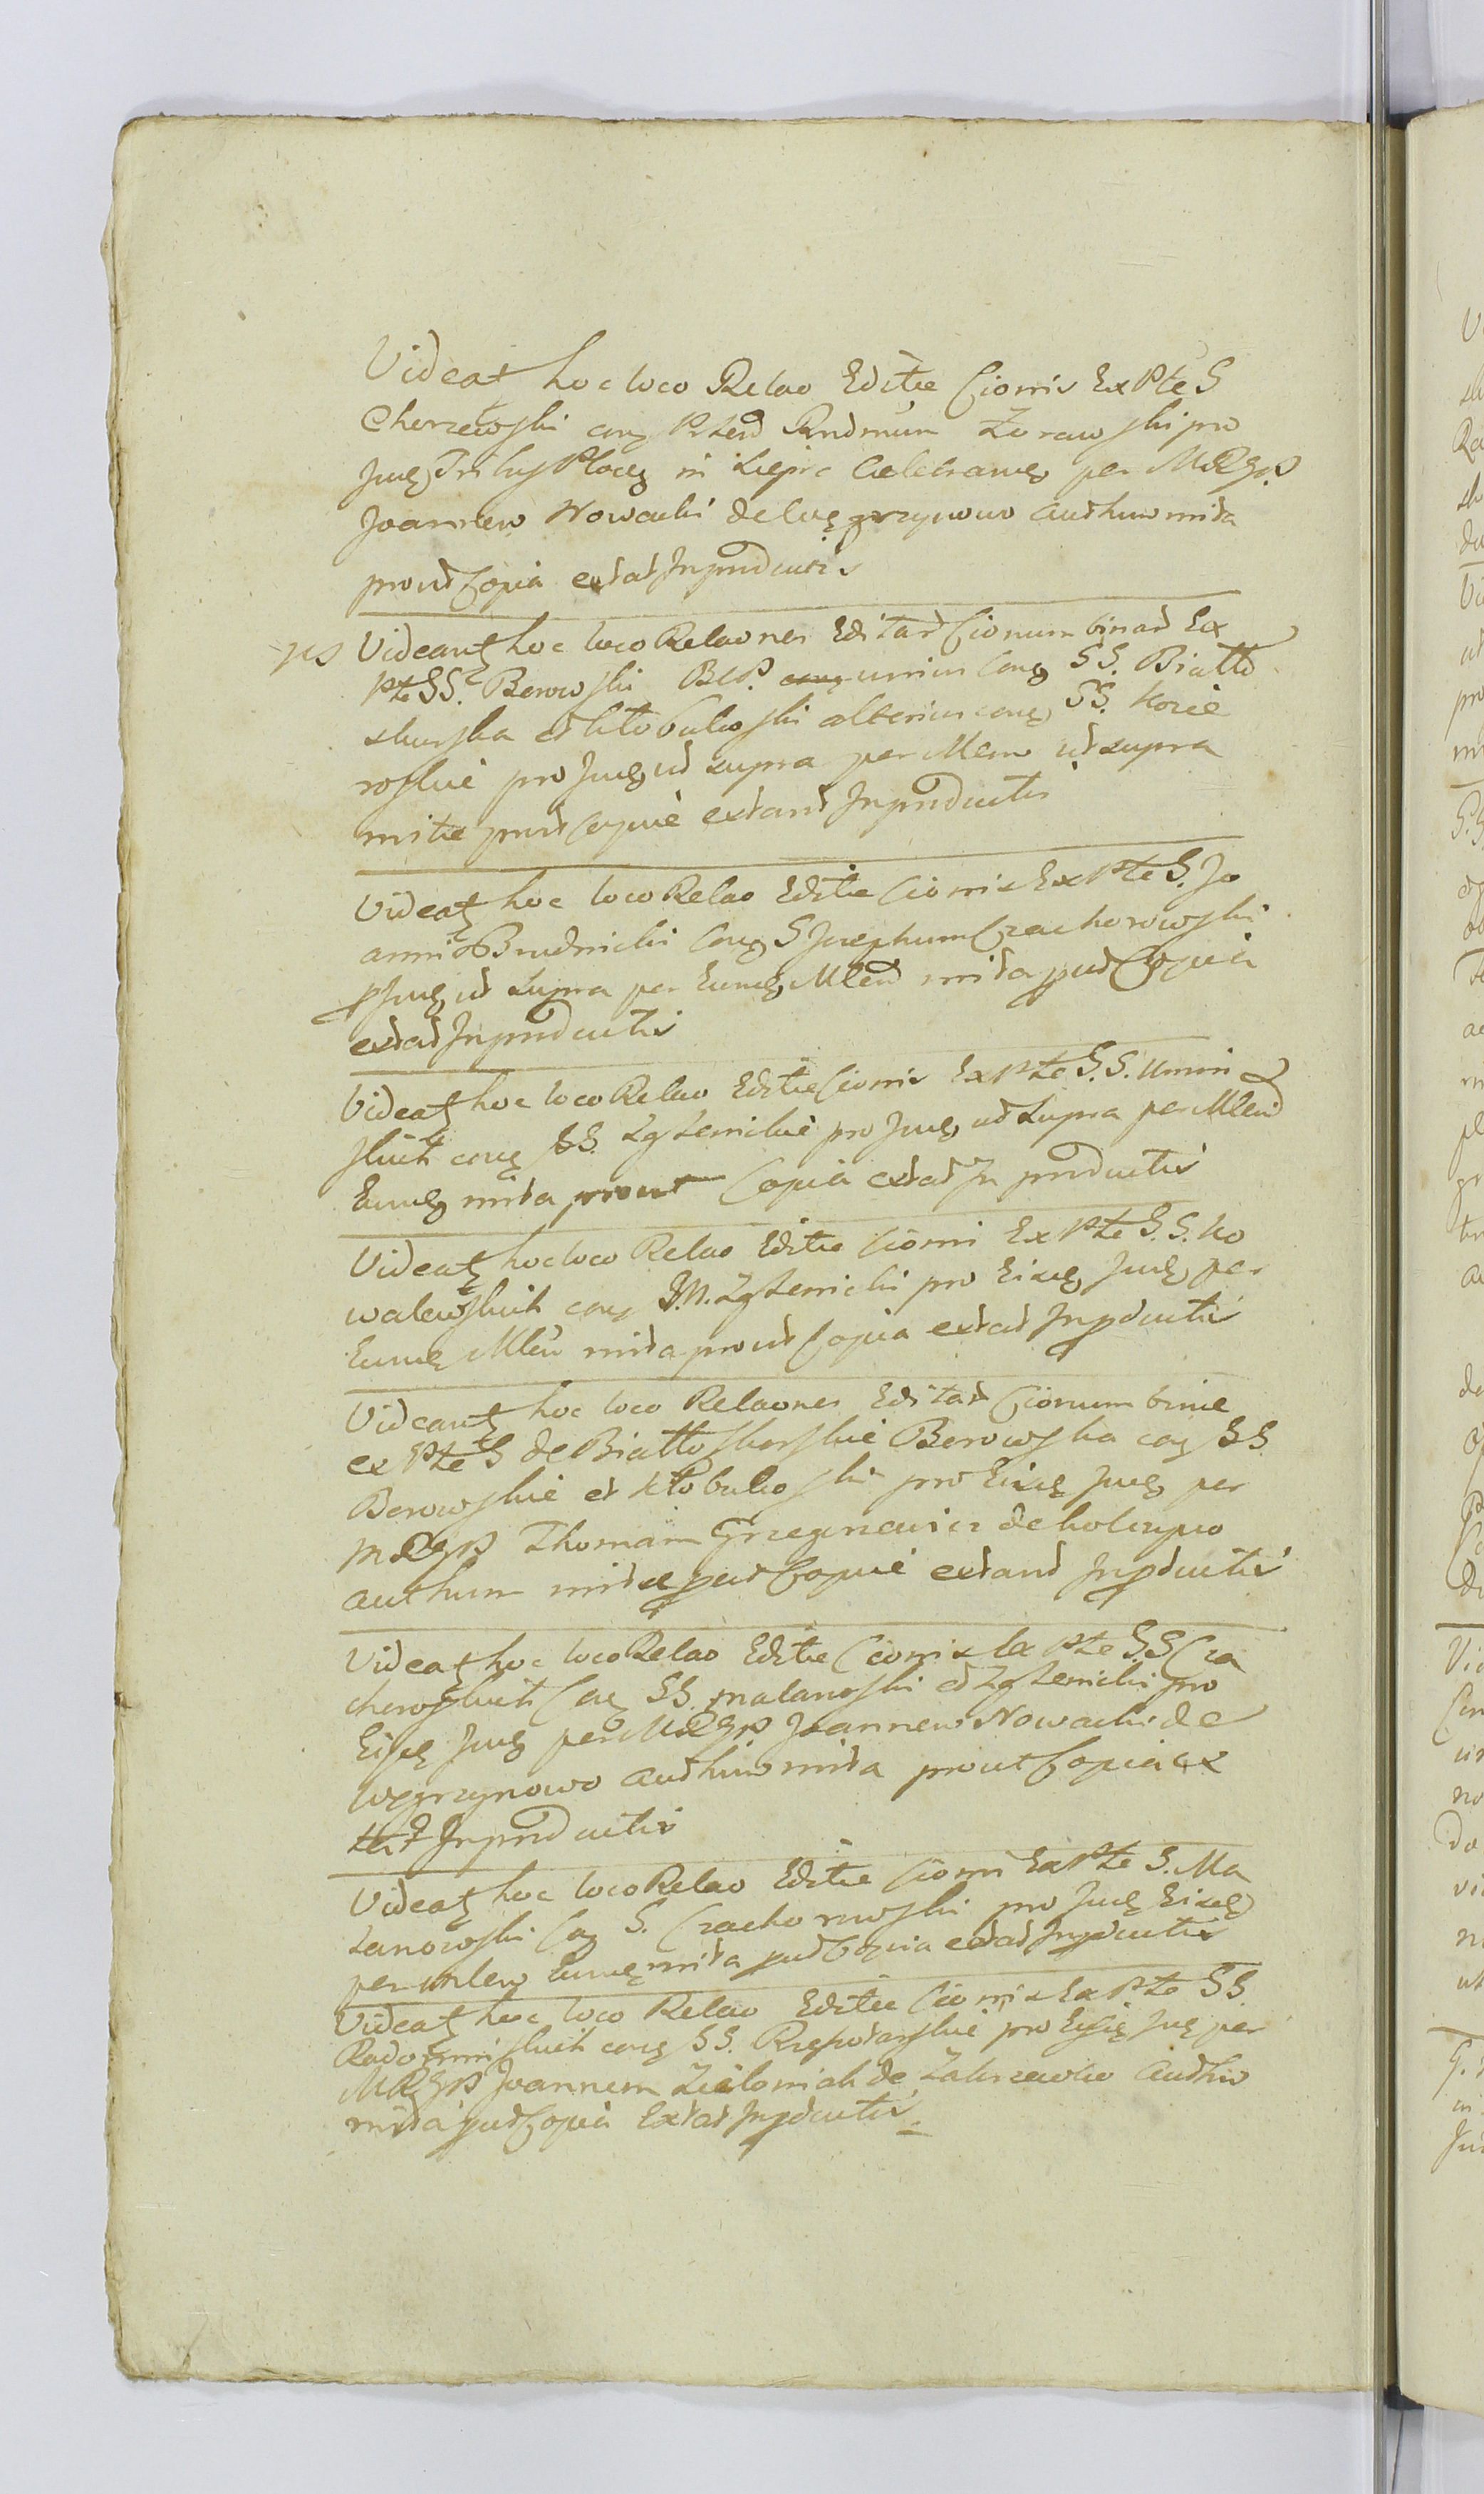 Videat hoc loco Relao Editæ Cionis Ex Pte S
Chorzewski cong Rlend Rndmum Zorawski pro
Jucg Trlbus Plocg in Lipie Celebrancg per MRGP
Joannem Nowacki de Węgrzynowo authum mita
prout Copia extat Inprodcutis
NS Videantg hoc loco Relaones Editar Cionum binar Ex
Pte SS. Borowski BCP. unius cong SS. Biallo
skurska et Kłobukoski alterius cong SS. Kozie
roskie pro Jucg ut supra per Mlem ut supra
mitæ prout Copiæ extant Inproductis
Videatg hoc loco Relao Editæ Cionis Ex Pte S. Jo
annis Brudnicki Cong S Josephum Czachorowski
p Jucg ut Supra per Eumcg Mlend mita put Copia
extat Inproductis
Videatg hoc loco Relao Editæ Cionis Ex Pte S.S. Umin
skich cong SS. Zglenickie pro Jucg ut Supra per Mlend
Eumcg mita prout Copia extat In productis
Videatg hoc loco Relao Editæ Cioni Ex Pte S.S. Ko
walewskich cong J.M. Zglenicki pro Eiscg Jucg per
Eumcg Mlem mita prout Copia extat Inpductis
Videantg hoc loco Relaones Editar Cionum binæ
ex Pte S de Biallo skorskie Borowska cog SS
Borowskie et Kłobukoski pro Eiscg Jucg per
MRGP Thomam Grzegorzewicz de Kolczyno
authum mitæ put Copiæ extant Inpductis
Videatg hoc loco Relao Editæ Cionis Ex Pte S.S Cza
choroskich Cong SS. Malanoski et Zglenicki pro
Eiscg Jucg per MRGP Joannem Nowacki de
Węgrzynowo authum mita prout Copia ex
tat Inproductis
Videatg hoc loco Relao Editæ Cioni Ex Pte S. Ma
lanowski Cog S. Czachorowski pro Jucg Eiscg
per Mlem Eumcg mita put Copia extat Inpductis
Videatg hoc loco Relao Editæ Cionis Ex Pte SS
Radominskich cong SS. pro Eiscg Jucg per
MRGP Joannem Zieloniak de Zakrzewko authu
mita put Copia Extat Inpductis